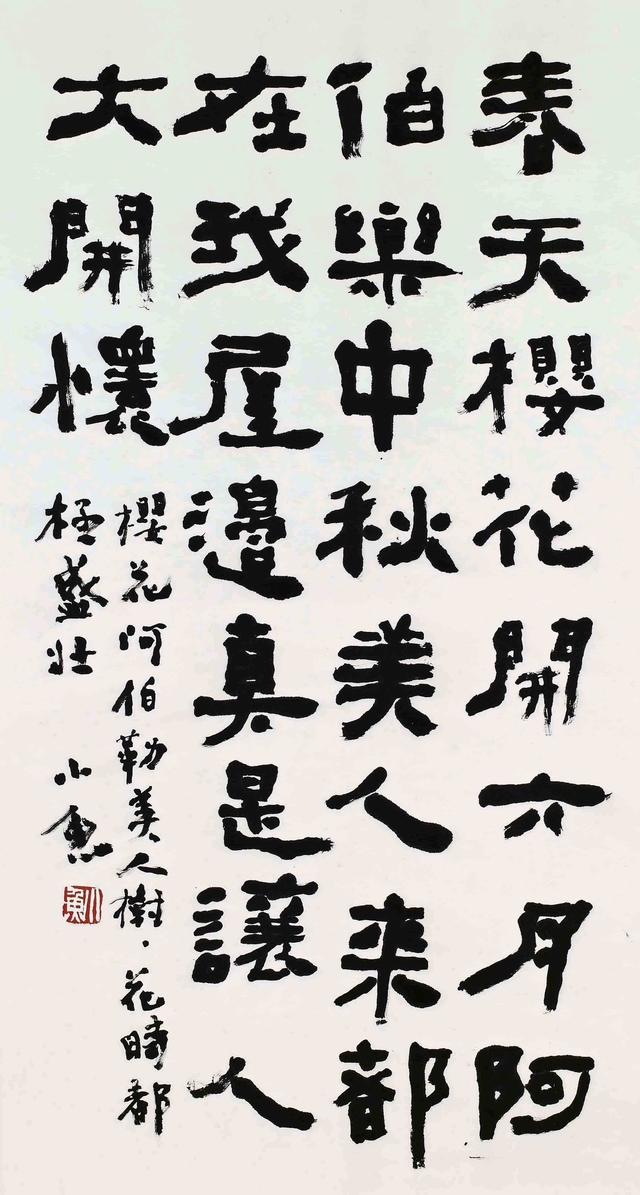 春天櫻花開六月阿
伯樂中秋美人來都
在我屋邊真是讓人
大開懷
櫻花阿伯勒美人樹、花時都
極盛壯
小魚
小魚